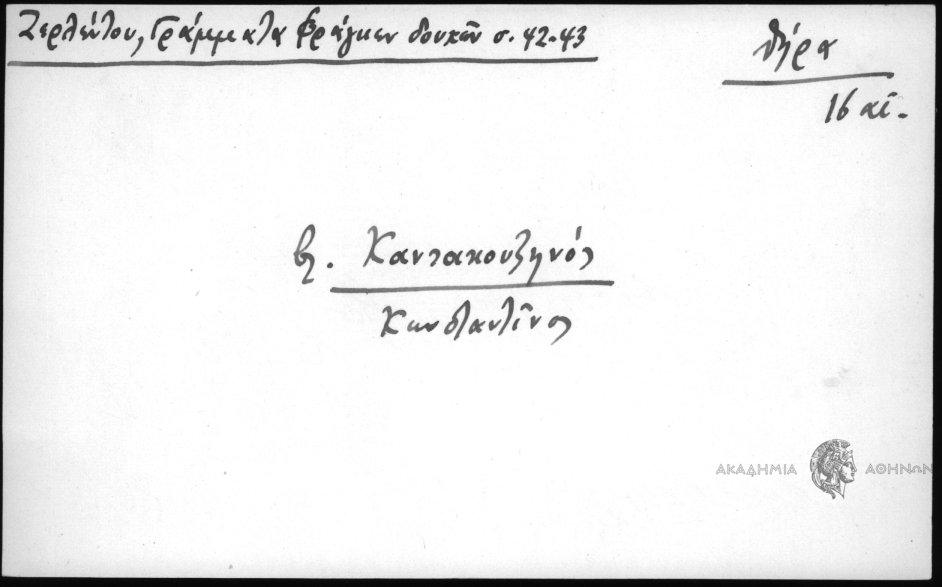 Ζερλέντου, Γράμματα Φράγκων δουκῶν σ. 42-43
Θήρα
16 αἰ.
βλ. Καντακουζηνός
Κωνσταντῖνος
ΑΚΑΔΗΜΙΑ ΑΘΗΝΩΝ